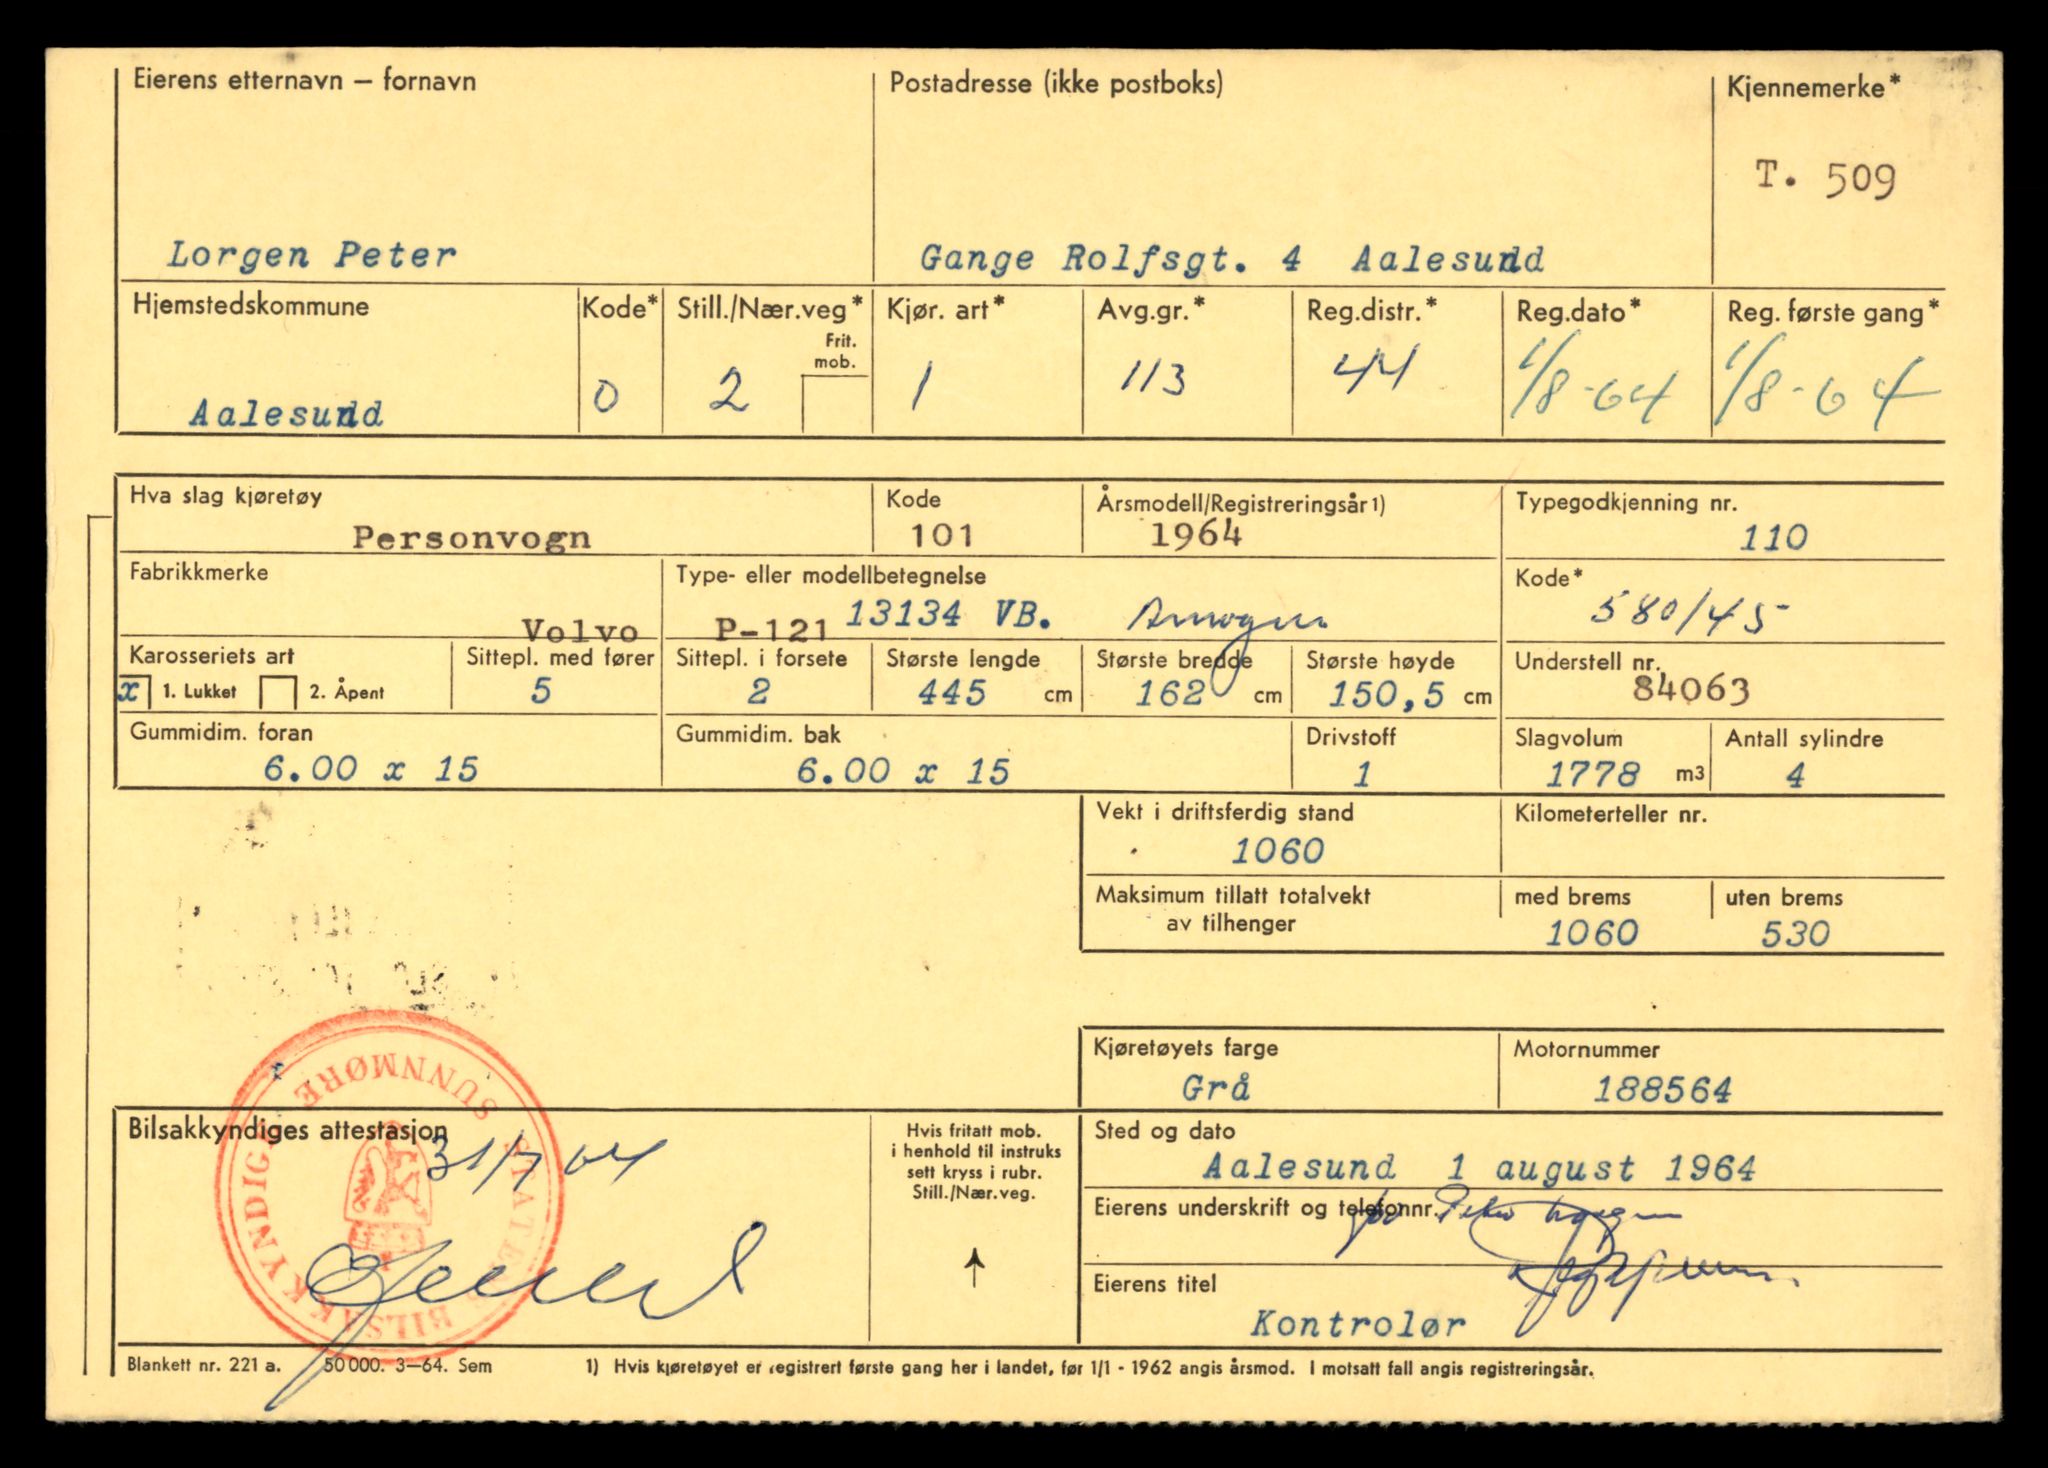 Eierens etternavn — fornavn Postadresse (ikke postboks) Kjennemerke*
T. 509
Lorgen Peter Gange Rolfsgt. 4 Aalesund
Hjemstedskommune Kode* Still./Nær.veg* Kjør. art* Avg.gr.* Reg.distr.* Reg.dato* Reg. første gang*
Frit.
mob.
Aalesund 0 2 1 113 44 1/8-64 1/8-64
Hva slag kjøretøy Kode Årsmodell/Registreringsår1) Typegodkjenning nr.
Personvogn 101 1964 110
Fabrikkmerke Type- eller modellbetegnelse Kode*
Volvo P-121 13134 VB. 580/45
Karosseriets art Sittepl. med fører Sittepl. i forsete Største lengde Største bredde Største høyde Understell nr.
x 1. Lukket 2. Åpent 5 2 445 cm 162 cm 150,5 cm 84063
Gummidim. foran Gummidim. bak Drivstoff Slagvolum Antall sylindre
6.00 x 15 6.00 x 15 1 1778 m3 4
Vekt i driftsferdig stand Kilometerteller nr.
1060
Maksimum tillatt totalvekt med brems uten brems
av tilhenger 1060 530
Kjøretøyets farge Motornummer
Grå 188564
Bilsakkyndiges attestasjon Hvis fritatt mob. Sted og dato
31/7 64 i henhold til instruks
sett kryss i rubr. Aalesund 1 august 1964
Still./Nær.veg.
Eierens underskrift og telefonnr. Peter Lorgen
Eierens titel
Kontrolør
STATENS BILSAKKYNDIGE SUNNMØRE
Blankett nr. 221 a. 50 000. 3—64. Sem 1) Hvis kjøretøyet er registrert første gang her i landet, før 1/1 - 1962 angis årsmod. I motsatt fall angis registreringsår.